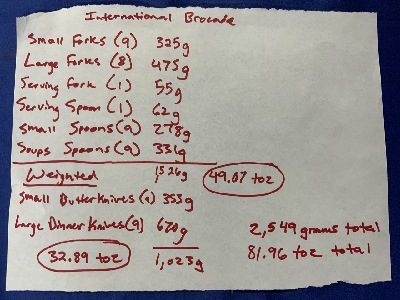 International Brocade
Small Forks (9) 325g
Large Forks (8) 475g
Serving Fork (1) 55g
Serving Spoon (1) 62g
Small Spoons (9) 278g
Soups Spoons (9) 331g
Weighted 1,526g 49.07 toz
Small Butter Knives (9) 353g
Large Dinner Knives (9) 670g
32.89 toz 1,023g
2,549 grams total
81.96 toz total